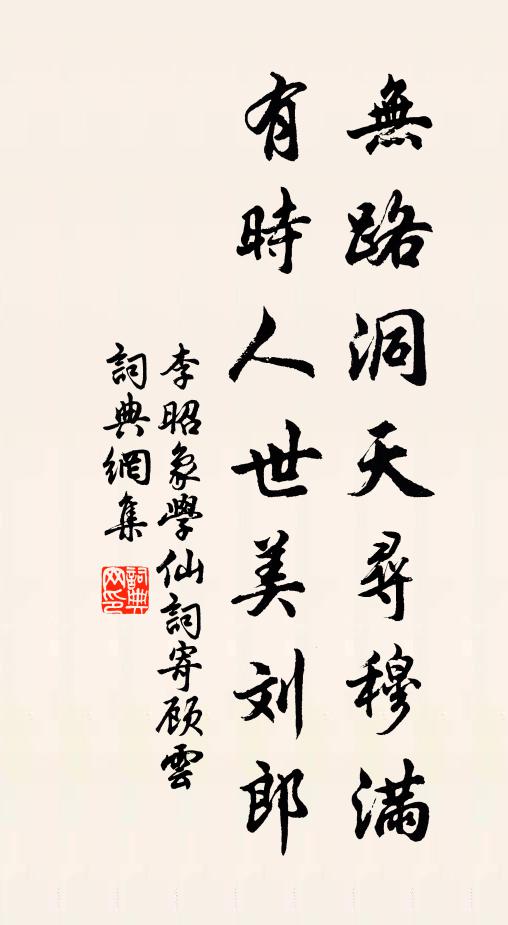 無路洞天尋穆滿
有時人世美刘郎
李昭象學仙詞寄顾雲
詞典網集
詞典網印